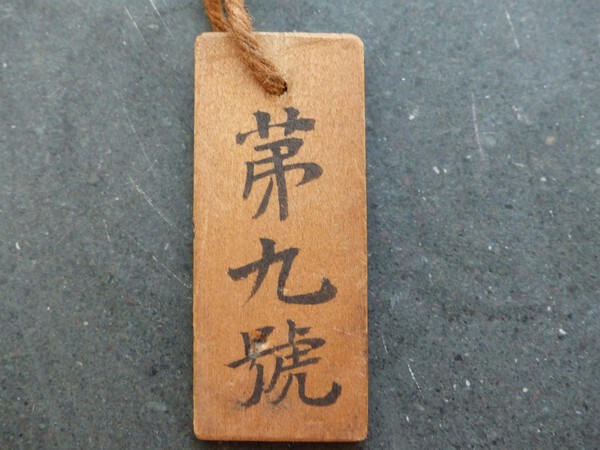 第九號